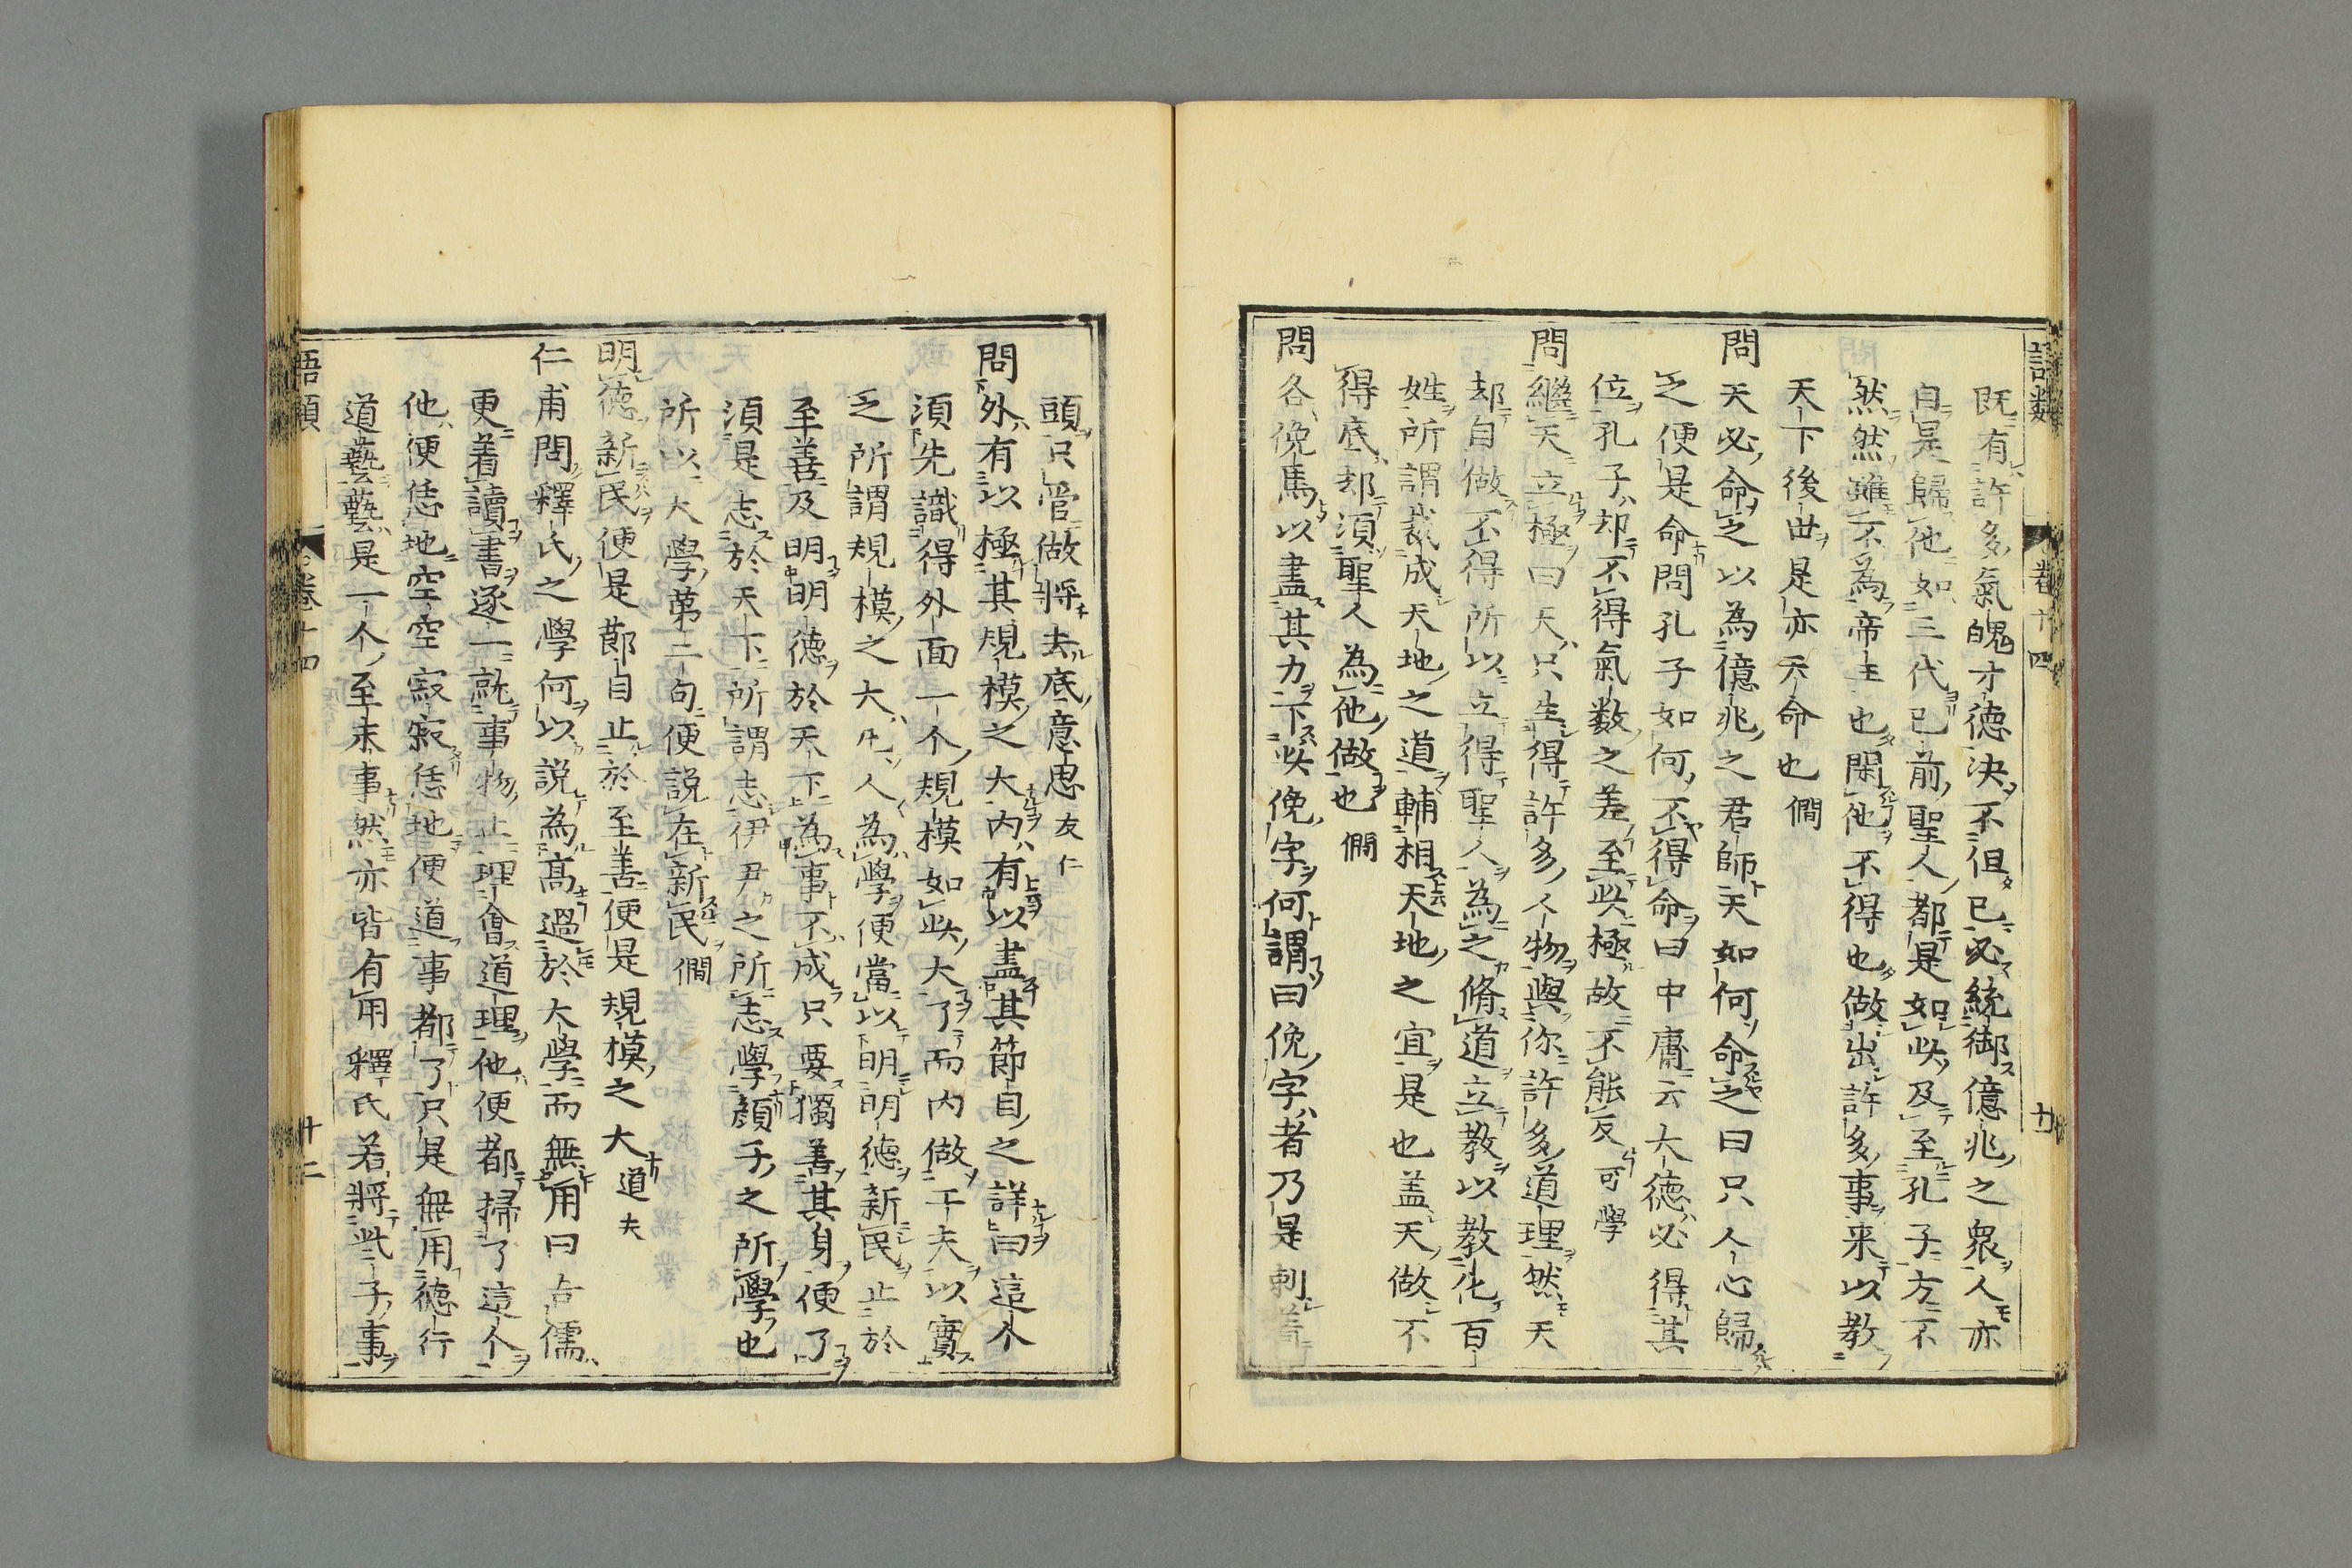 語類 卷十四 十一
既有許多氣魄才德決不但已必統御億兆之眾人亦
自是歸他如三代已前聖人都是如此及至孔子方不
然然雖不為帝王也閑他不得也做出許多事來以教
天下後世是亦天命也僩
問天必命之以為億兆之君師天如何命之曰只人心歸
之便是命問孔子如何不得命曰中庸云大德必得其
位孔子却不得氣數之差至此極故不能反可學
問繼天立極曰天只生得許多人物與你許多道理然天
却自做不得所以立得聖人為之脩道立教以教化百
姓所謂裁成天地之道輔相天地之宜是也盖天做不
得底却須聖人為他做也僩
問各俛焉以盡其力下此俛字何謂曰俛字者乃是刺著
頭只管做將去底意思友仁
問外有以極其規模之大内有以盡其節目之詳曰這个
須先識得外面一个規模如此大了而内做工夫以實
之所謂規模之大凡人為學便當以明明德新民止於
至善及明明德於天下為事不成只要獨善其身便了
須是志於天下所謂志伊尹之所志學顏子之所學也
所以大學第二句便說在新民僩
明德新民便是節目止於至善便是規模之大道夫
仁甫問釋氏之學何以說為高過於大學而無用曰吾儒
更着讀書逐一就事物上理會道理他便都掃了這个
他便恁地空空寂寂恁地便道事都了只是無用德行
道藝藝是一个至末事然亦皆有用釋氏若將此子事
語類 卷十四 十二